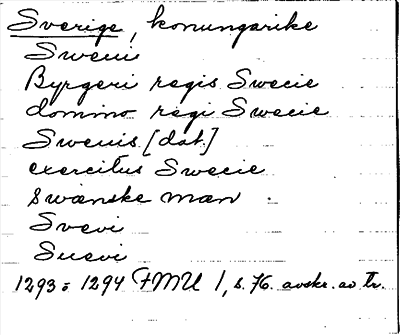 Sverige, konungarike
Sweui
Byrgeri regis Swecie
domino regi Swecie
Sweuis [dat.]
exercitus Swecie
swænske mæn
Svevi
Suevi
1293 = 1294 FMU 1, s. 76. avskr. av Tr.